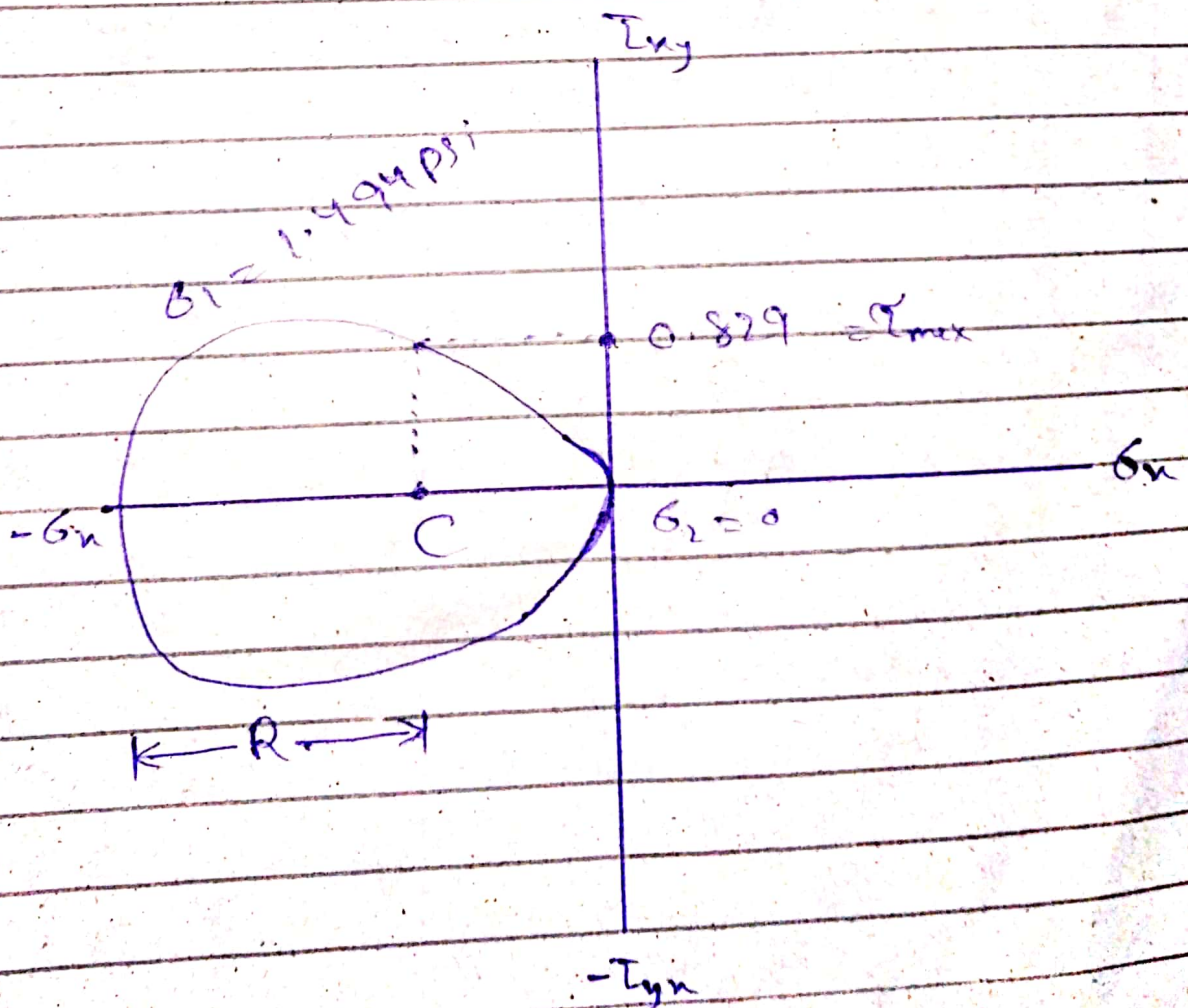 τxy
σ1 = 1.494 psi
0.829 = τmax
σx
-σx
C
σ2 = 0
R
-τyx